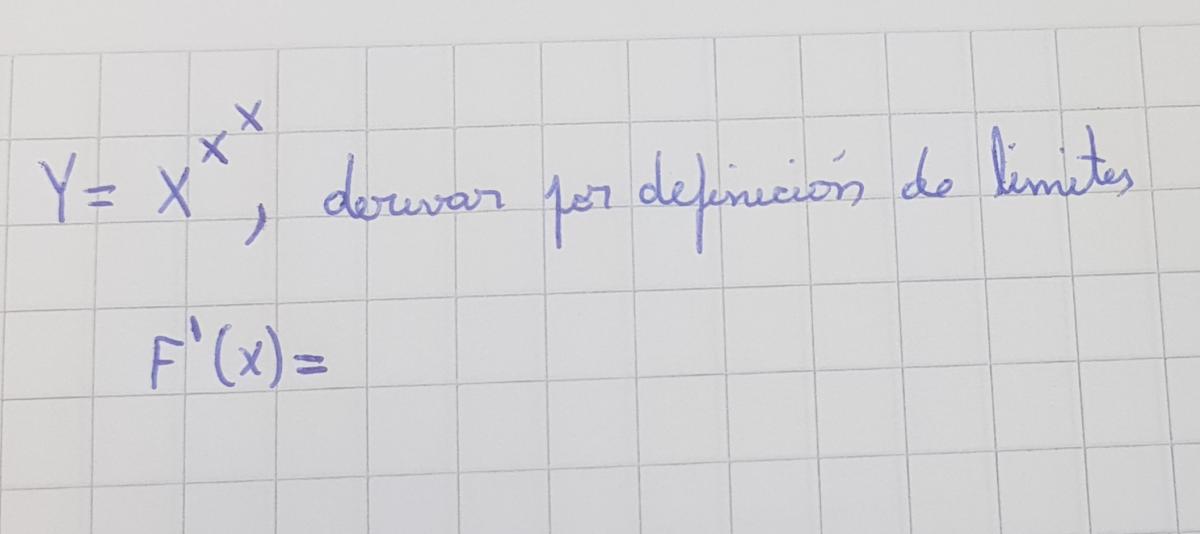 Y = X^X^X, derivar por definición de límites
F'(x)=